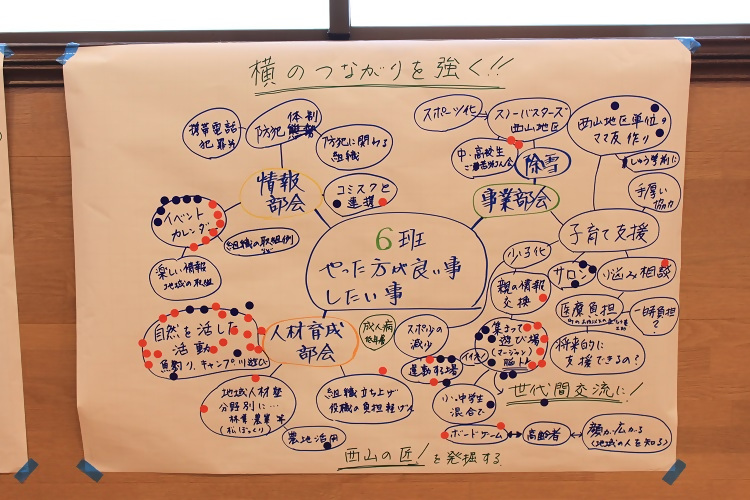 横のつながりを強く!!
携帯電話
犯罪力
防犯 体制
防犯に関わる
組織
情報
部会
コミスクと
連携
イベント
カレンダー
組織の取組例
など
楽しい情報
地域の取組
スポーツ化
スノーバスターズ
西山地区
中・高校生
除雪
事業部会
西山地区単位の
ママ友作り
手厚い
協力
子育て支援
少子化
サロン
悩み相談
親の情報
交換
医療負担
一時負担
?
将来的に
支援できるの?
6班
やった方が良い事
したい事
自然を活した
活動
魚釣り、キャンプ、川遊び
人材育成
部会
成人病
スポ少の
減少
運動する場
集まって
遊び場
(マージャン)
脳トレ
世代間交流に!
小中学生
混合で
地域人材塾
分野別に…
林業 農業 等
(松ぼっくり)
組織立ち上げ
役職の負担軽減
農地活用
ボードゲーム
高齢者
顔が広がる
(地域の人を知る)
西山の匠!を発掘する